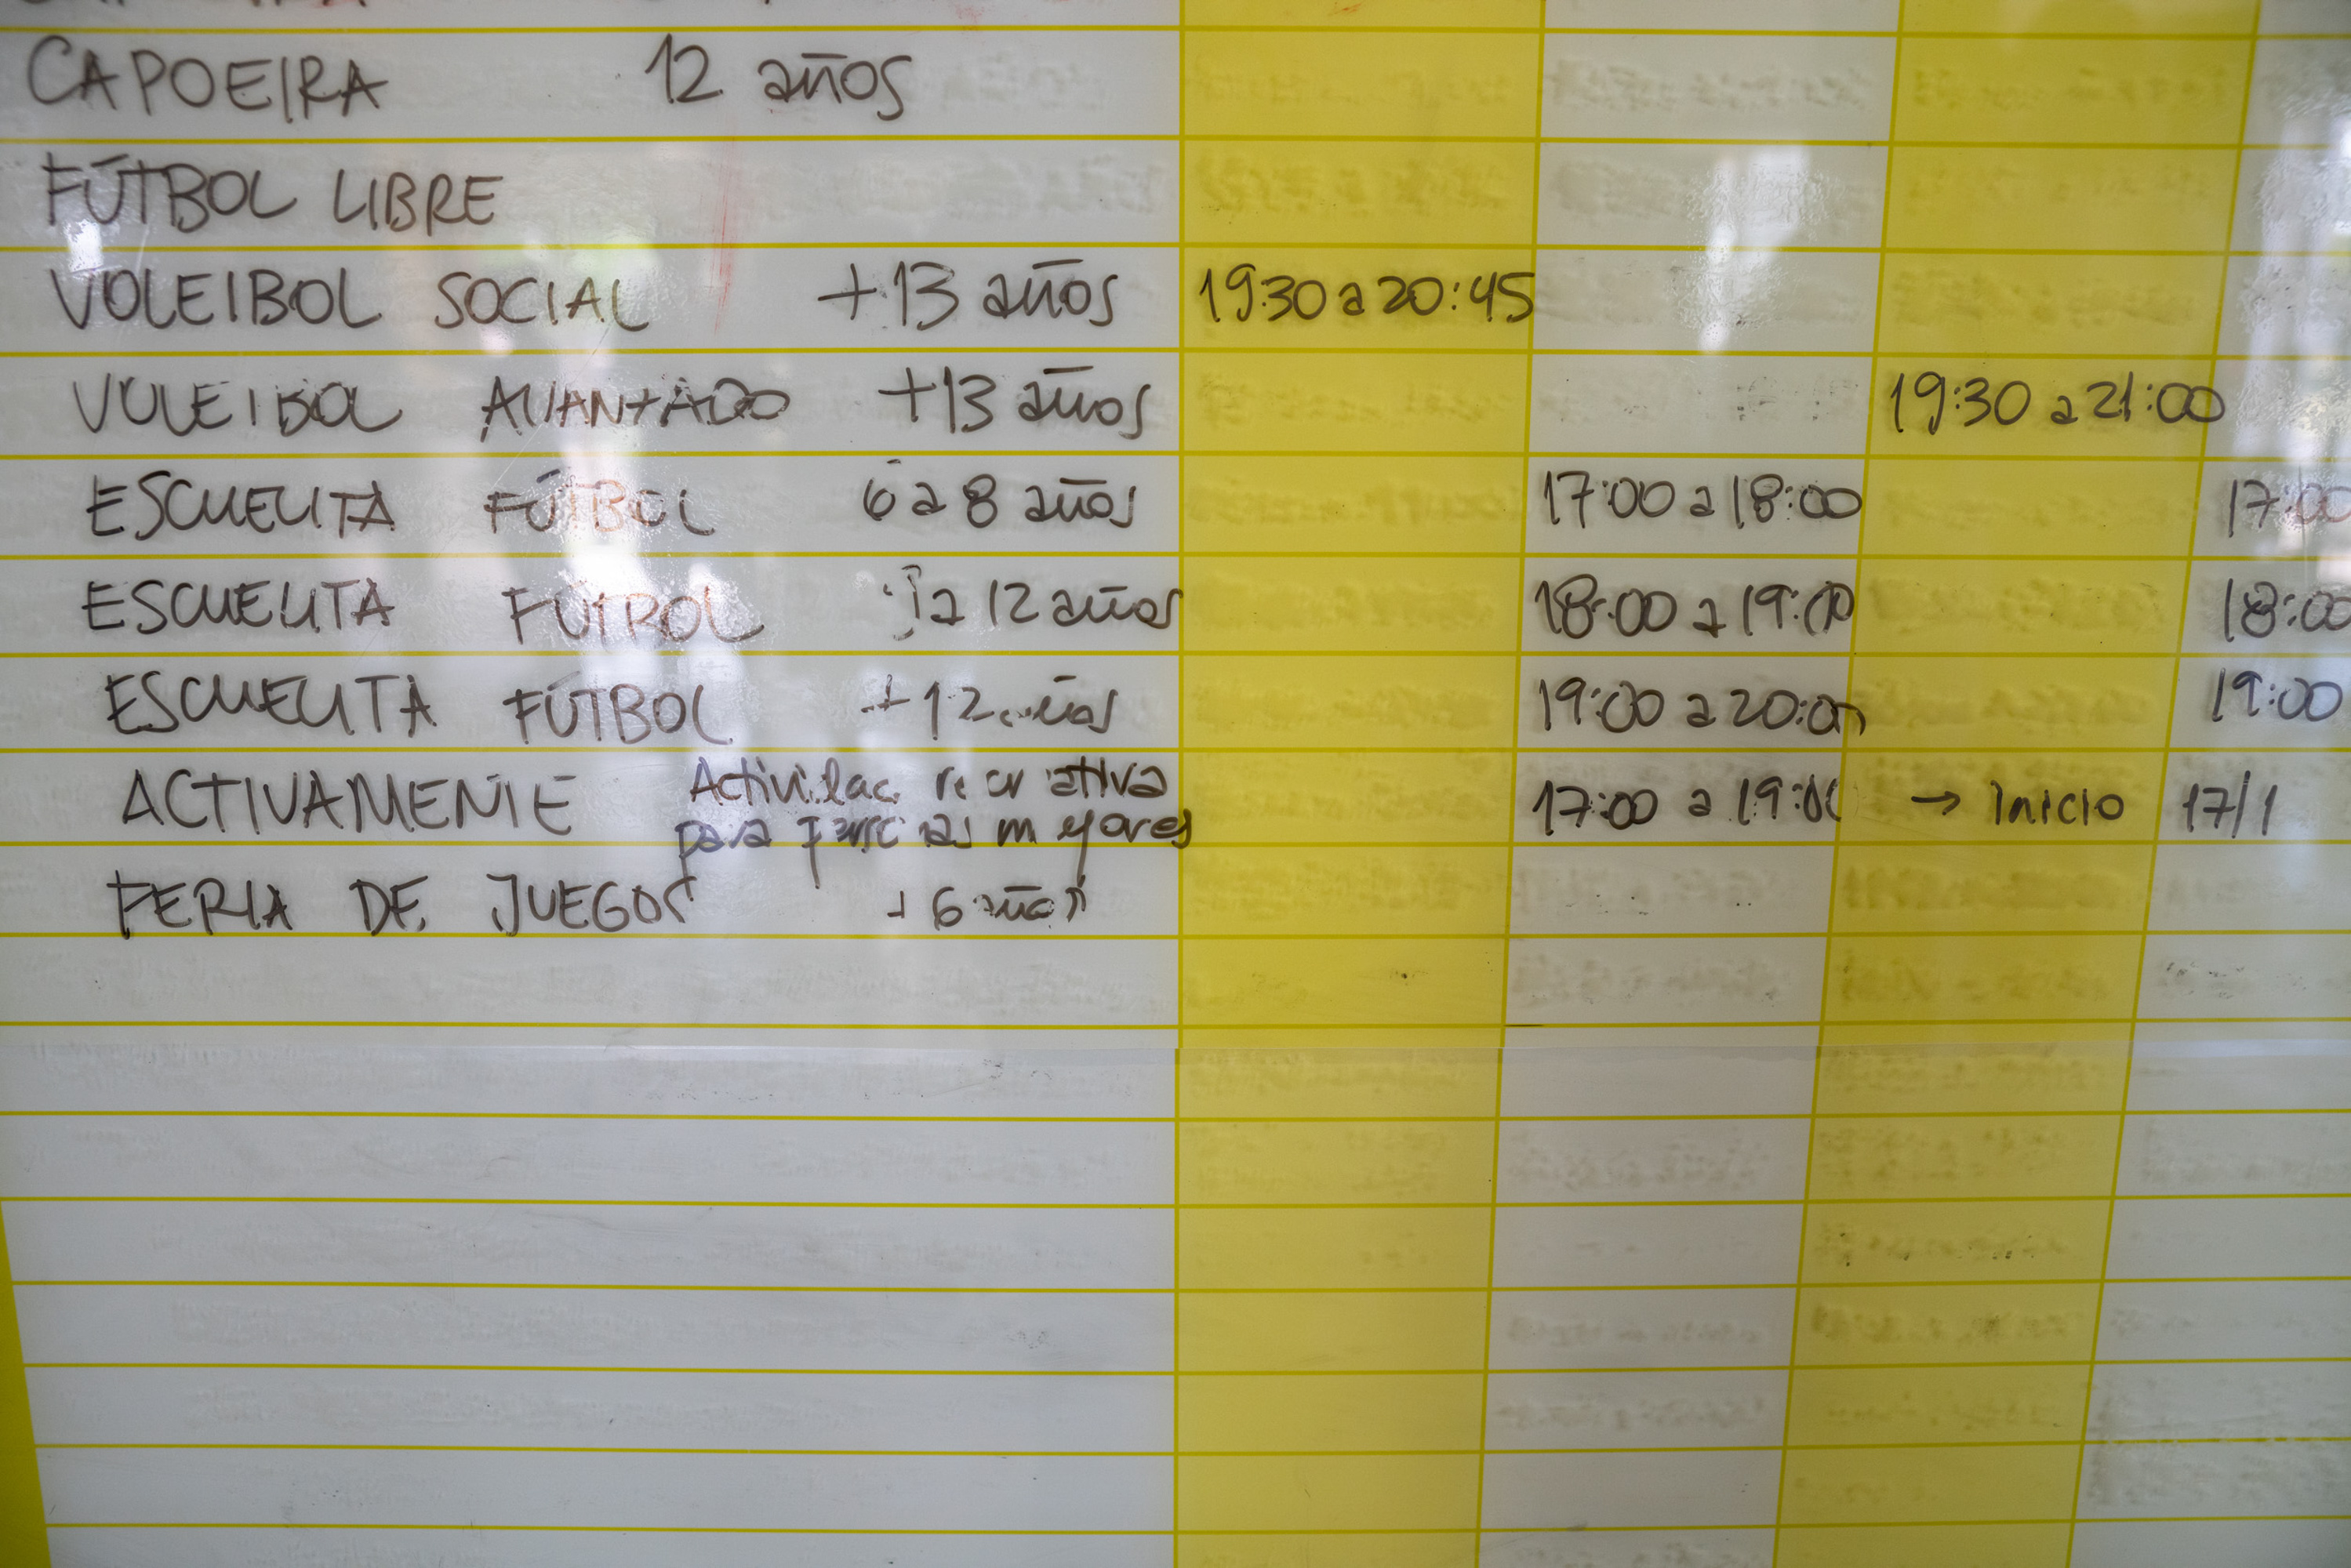 CAPOEIRA 12 años
FÚTBOL LIBRE
VOLEIBOL SOCIAL +13 años 19:30 a 20:45
VOLEIBOL AVANZADO +13 años 19:30 a 21:00
ESCUELITA FÚTBOL 6 a 8 años 17:00 a 18:00 17:00
ESCUELITA FÚTBOL a 12 años 18:00 a 19:00 18:00
ESCUELITA FÚTBOL +12 años 19:00 a 20:00 19:00
ACTIVAMENTE Actividad recreativa 17:00 a 19:00 → Inicio 17/1
para personas mayores
FERIA DE JUEGOS + 6 años